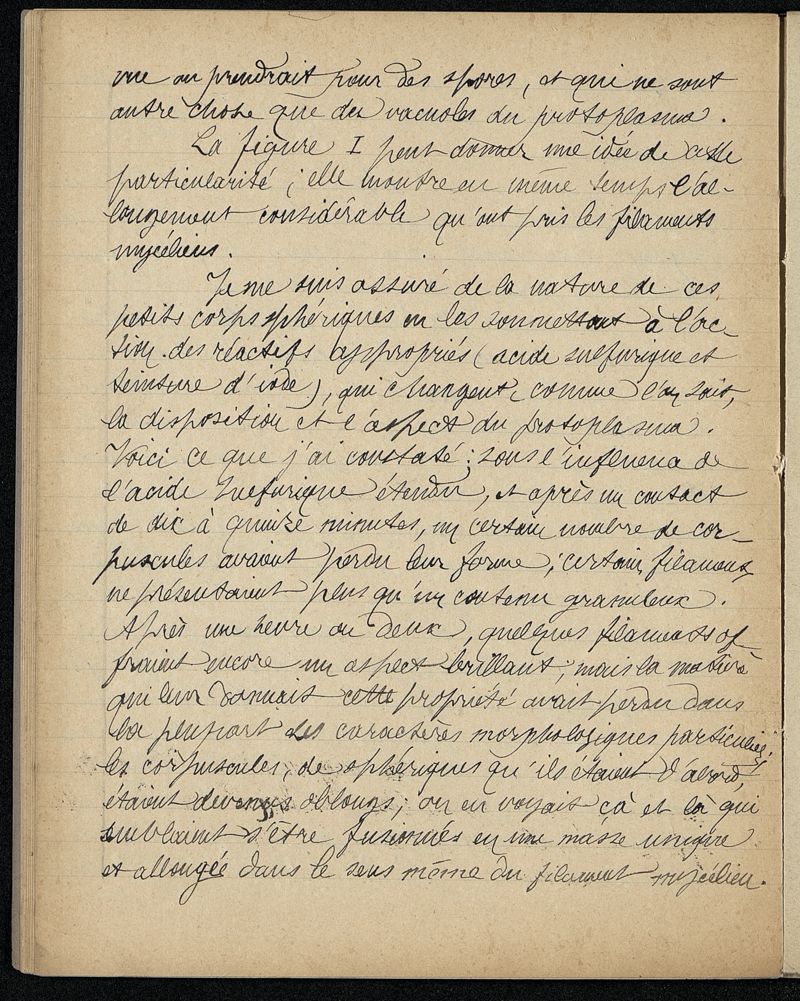 vue on prendrait pour des spores, et qui ne sont
autre chose que des vacuoles du protoplasma.
La figure I peut donner une idée de cette
particularité; elle montre en même temps l'al-
longement considérable qu'ont pris les filaments
mycéliens.
Je me suis assuré de la nature de ces
petits corps sphériques en les soumettant à l'ac-
tion des réactifs appropriés (acide sulfurique et
teinture d'iode), qui changent, comme l'on sait,
la disposition et l'aspect du protoplasma.
Voici ce que j'ai constaté: sous l'influence de
l'acide sulfurique étendu, et après un contact
de dix à quinze minutes, un certain nombre de cor-
puscules avaient perdu leur forme; certains filaments
ne présentaient plus qu'un contenu granuleux.
Après une heure ou deux, quelques filaments of-
fraient encore un aspect brillant; mais la matière
qui leur donnait cette propriété avait perdu dans
la plupart des caractères morphologiques particuliers;
les corpuscules, de sphériques qu'ils étaient d'abord,
étaient devenus oblongs; on en voyait çà et là qui
semblaient s'être fusionnés en une masse unique
et allongée dans le sens même du filament mycélien.